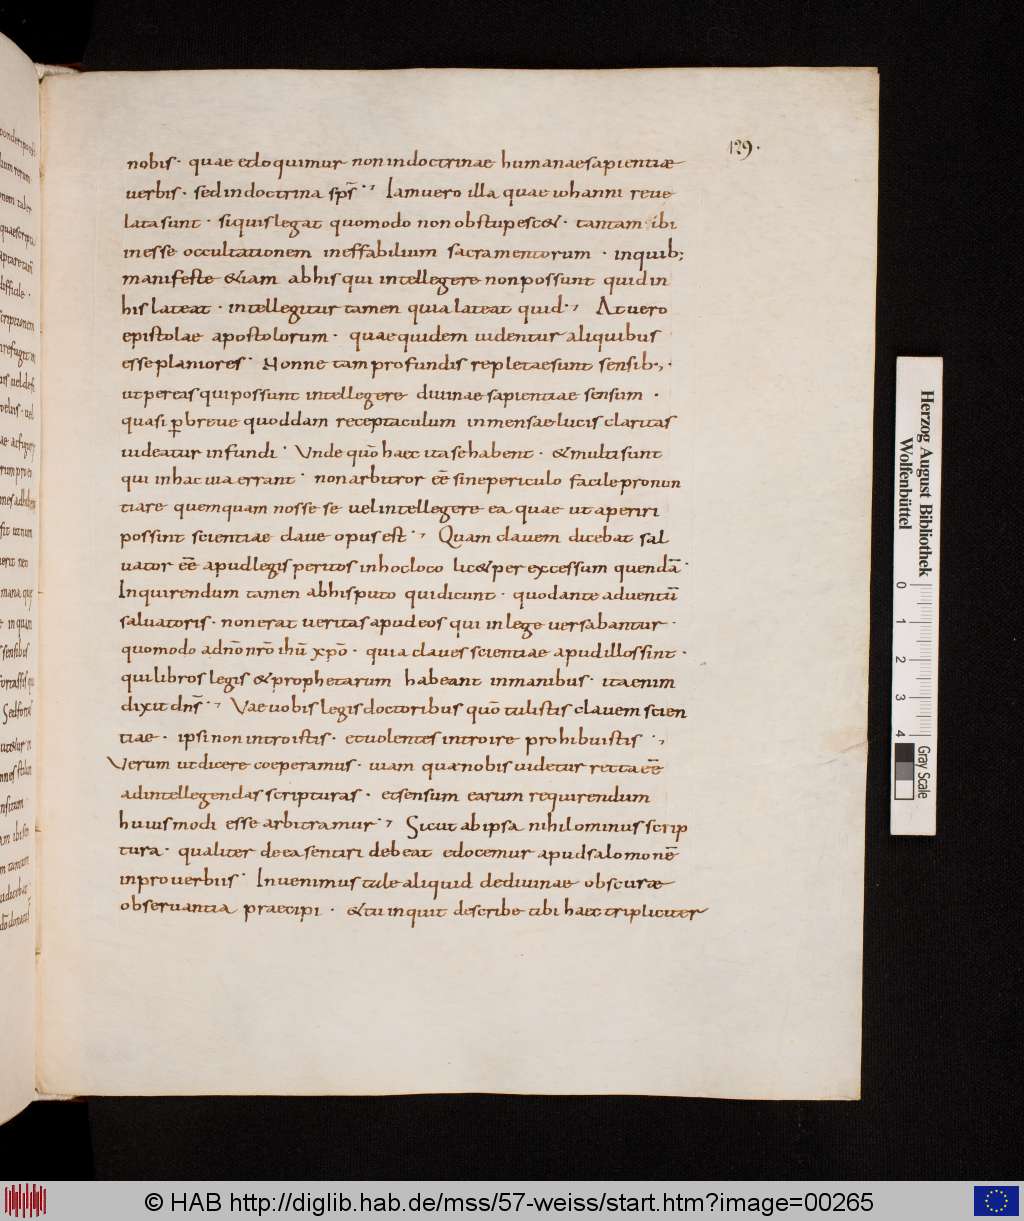 129.
nobis· quae & loquimur non in doctrinae humanae sapientiae
verbis· sed in doctrina sp̄s·, Iam uero illa quae iohanni reue
lata sunt· si quis legat quomodo non obstupesc&· tantam ibi
inesse occultationem ineffabilium sacramentorum· in quib;
manifeste &iam ab his qui intellegere non possunt quid in
his lateat· intellegitur tamen quia lateat quid·, At uero
epistolae apostolorum· quae quidem uidentur aliquibus
esse planiores· Nonne tam profundis repletae sunt sensib;·
ut per eas qui possunt intellegere diuinae sapientiae sensum·
quasi ꝑ breue quoddam receptaculum inmensae lucis claritas
uideatur infundi· Vnde quō haec ita se habent· & multi sunt
qui in hac uia errant· non arbitror eē sine periculo facile pronun
tiare quemquam nosse se uel intellegere ea quae ut aperiri
possint scientiae claue opus est·, Quam clauem dicebat sal
uator eē apud legis peritos in hoc loco lic& per excessum quendā·
Inquirendum tamen ab his puto qui dicunt· quod ante aduentū
saluatoris· non erat ueritas apud eos qui in lege uersabantur·
quomodo a dn̄o nr̄o ih̄u xp̄o· quia claues scientiae apud illos sint·
qui libros legis & prophetarum habeant in manibus· ita enim
dixit dn̄s·, Vae uobis legis doctoribus quō tulistis clauem scien
tiae· ipsi non introistis· et uolentes introire prohibuistis·,
Verum ut dicere coeperamus· uiam quae nobis uidetur recta eē
ad intellegendas scripturas· et sensum earum requirendum
huiusmodi esse arbitramur·, Sicut ab ipsa nihilominus scrip
tura· qualiter de ea sentiri debeat edocemur apud salomonē
in prouerbiis· Inuenimus tale aliquid de diuinae obscurae
obseruantia praecipi· & tu inquit describe tibi haec tripliciter
Herzog August Bibliothek
Wolfenbüttel
0 1 2 3 4
Gray Scale
© HAB http://diglib.hab.de/mss/57-weiss/start.htm?image=00265